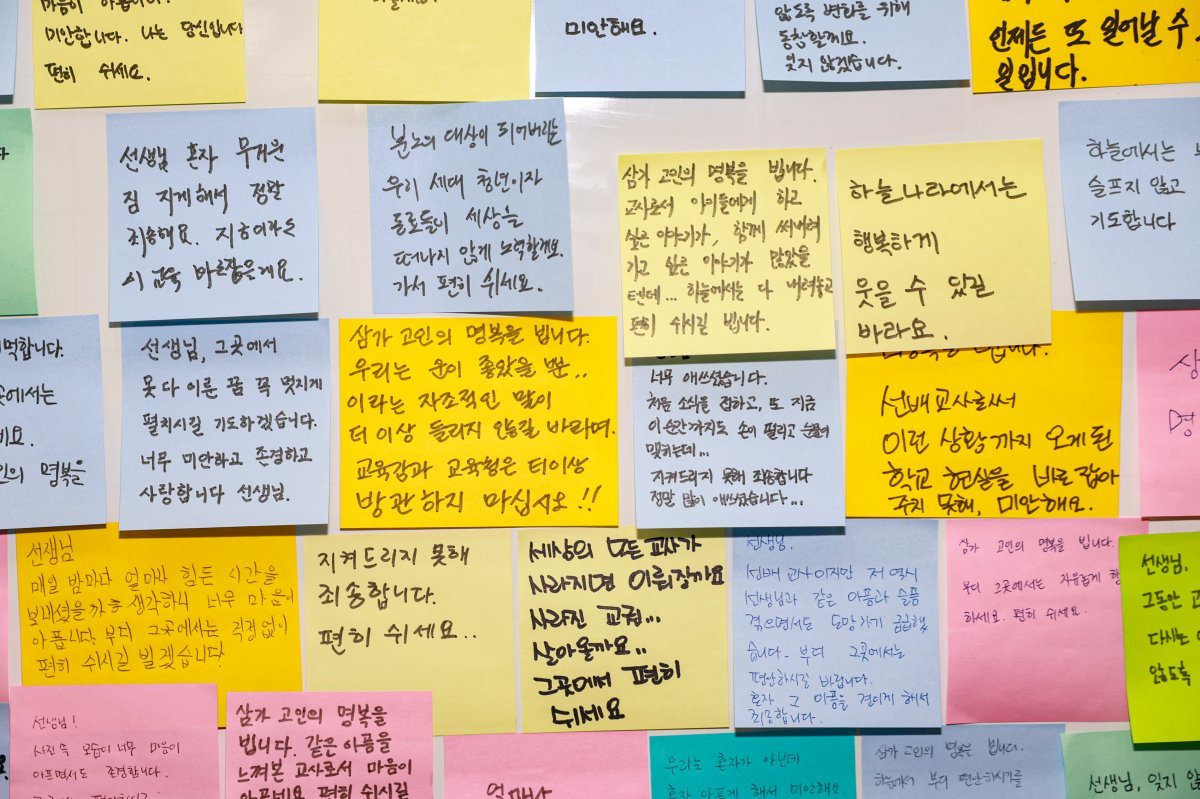 마음이 아픕니다.
미안합니다. 나는 당신입니다
편히 쉬세요.
미안해요.
않도록 변화를 위해
동참할게요.
잊지 않겠습니다.
언제든 또 일어날 수
일입니다.
선생님 혼자 무거운
짐 지게해서 정말
죄송해요.
시 교육 바로잡을게요.
분노의 대상이 되어버린
우리 세대 청년이자
동료들이 세상을
떠나지 않게 노력할게요.
가서 편히 쉬세요.
삼가 고인의 명복을 빕니다.
교사로서 아이들에게 하고
싶은 이야기가, 함께 써내려
가고 싶은 이야기가 많았을
텐데... 하늘에서는 다 내려놓고
편히 쉬시길 빕니다.
하늘나라에서는
행복하게
웃을 수 있길
바라요.
하늘에서는
슬프지 않고
기도합니다
억합니다.
곳에서는
세요.
인의 명복을
선생님, 그곳에서
못다 이룬 꿈 꼭 멋지게
펼치시길 기도하겠습니다.
너무 미안하고 존경하고
사랑합니다 선생님.
삼가 고인의 명복을 빕니다.
우리는 운이 좋았을 뿐..
이라는 자조적인 말이
더 이상 들리지 않길 바라며.
교육감과 교육청은 더이상
방관하지 마십시오!!
너무 애쓰셨습니다.
처음 소식을 접하고, 또 지금
이 순간까지도 손이 떨리고 눈물이
맺히는데...
지켜드리지 못해 죄송합니다
정말 많이 애쓰셨습니다...
선배교사로써
이런 상황까지 오게된
학교 현실을 바로잡아
주지 못해, 미안해요.
상
명
선생님
매일 밤마다 얼마나 힘든 시간을
보내셨을까 생각하니 너무 마음이
아픕니다. 부디 그곳에서는 걱정없이
편히 쉬시길 빌겠습니다.
지켜드리지 못해
죄송합니다.
편히 쉬세요..
세상의 모든 교사가
사라지면 이뤄질까요
사라진 교권...
살아올까요..
그곳에서 편히
쉬세요
선생님.
선배 교사이지만 저 역시
선생님과 같은 아픔과 슬픔
겪으면서도 도망가기 급급했
습니다. 부디 그곳에서는
편안하시길 바랍니다.
혼자 그 아픔을 견디게 해서
죄송합니다.
삼가 고인의 명복을 빕니다.
부디 그곳에서는 자유롭게
하세요. 편히 쉬세요.
선생님.
그동안
다시는
않도록
선생님!
사진 속 모습이 너무 마음이
아프면서도 존경합니다.
삼가 고인의 명복을
빕니다. 같은 아픔을
느껴본 교사로서 마음이
아프네요 편히 쉬시길
우리는 혼자가 아닌데
혼자 아프게 해서 미안해요
삼가 고인의 명복을 빕니다.
하늘에서 부디 편안하시기를
선생님, 잊지 않